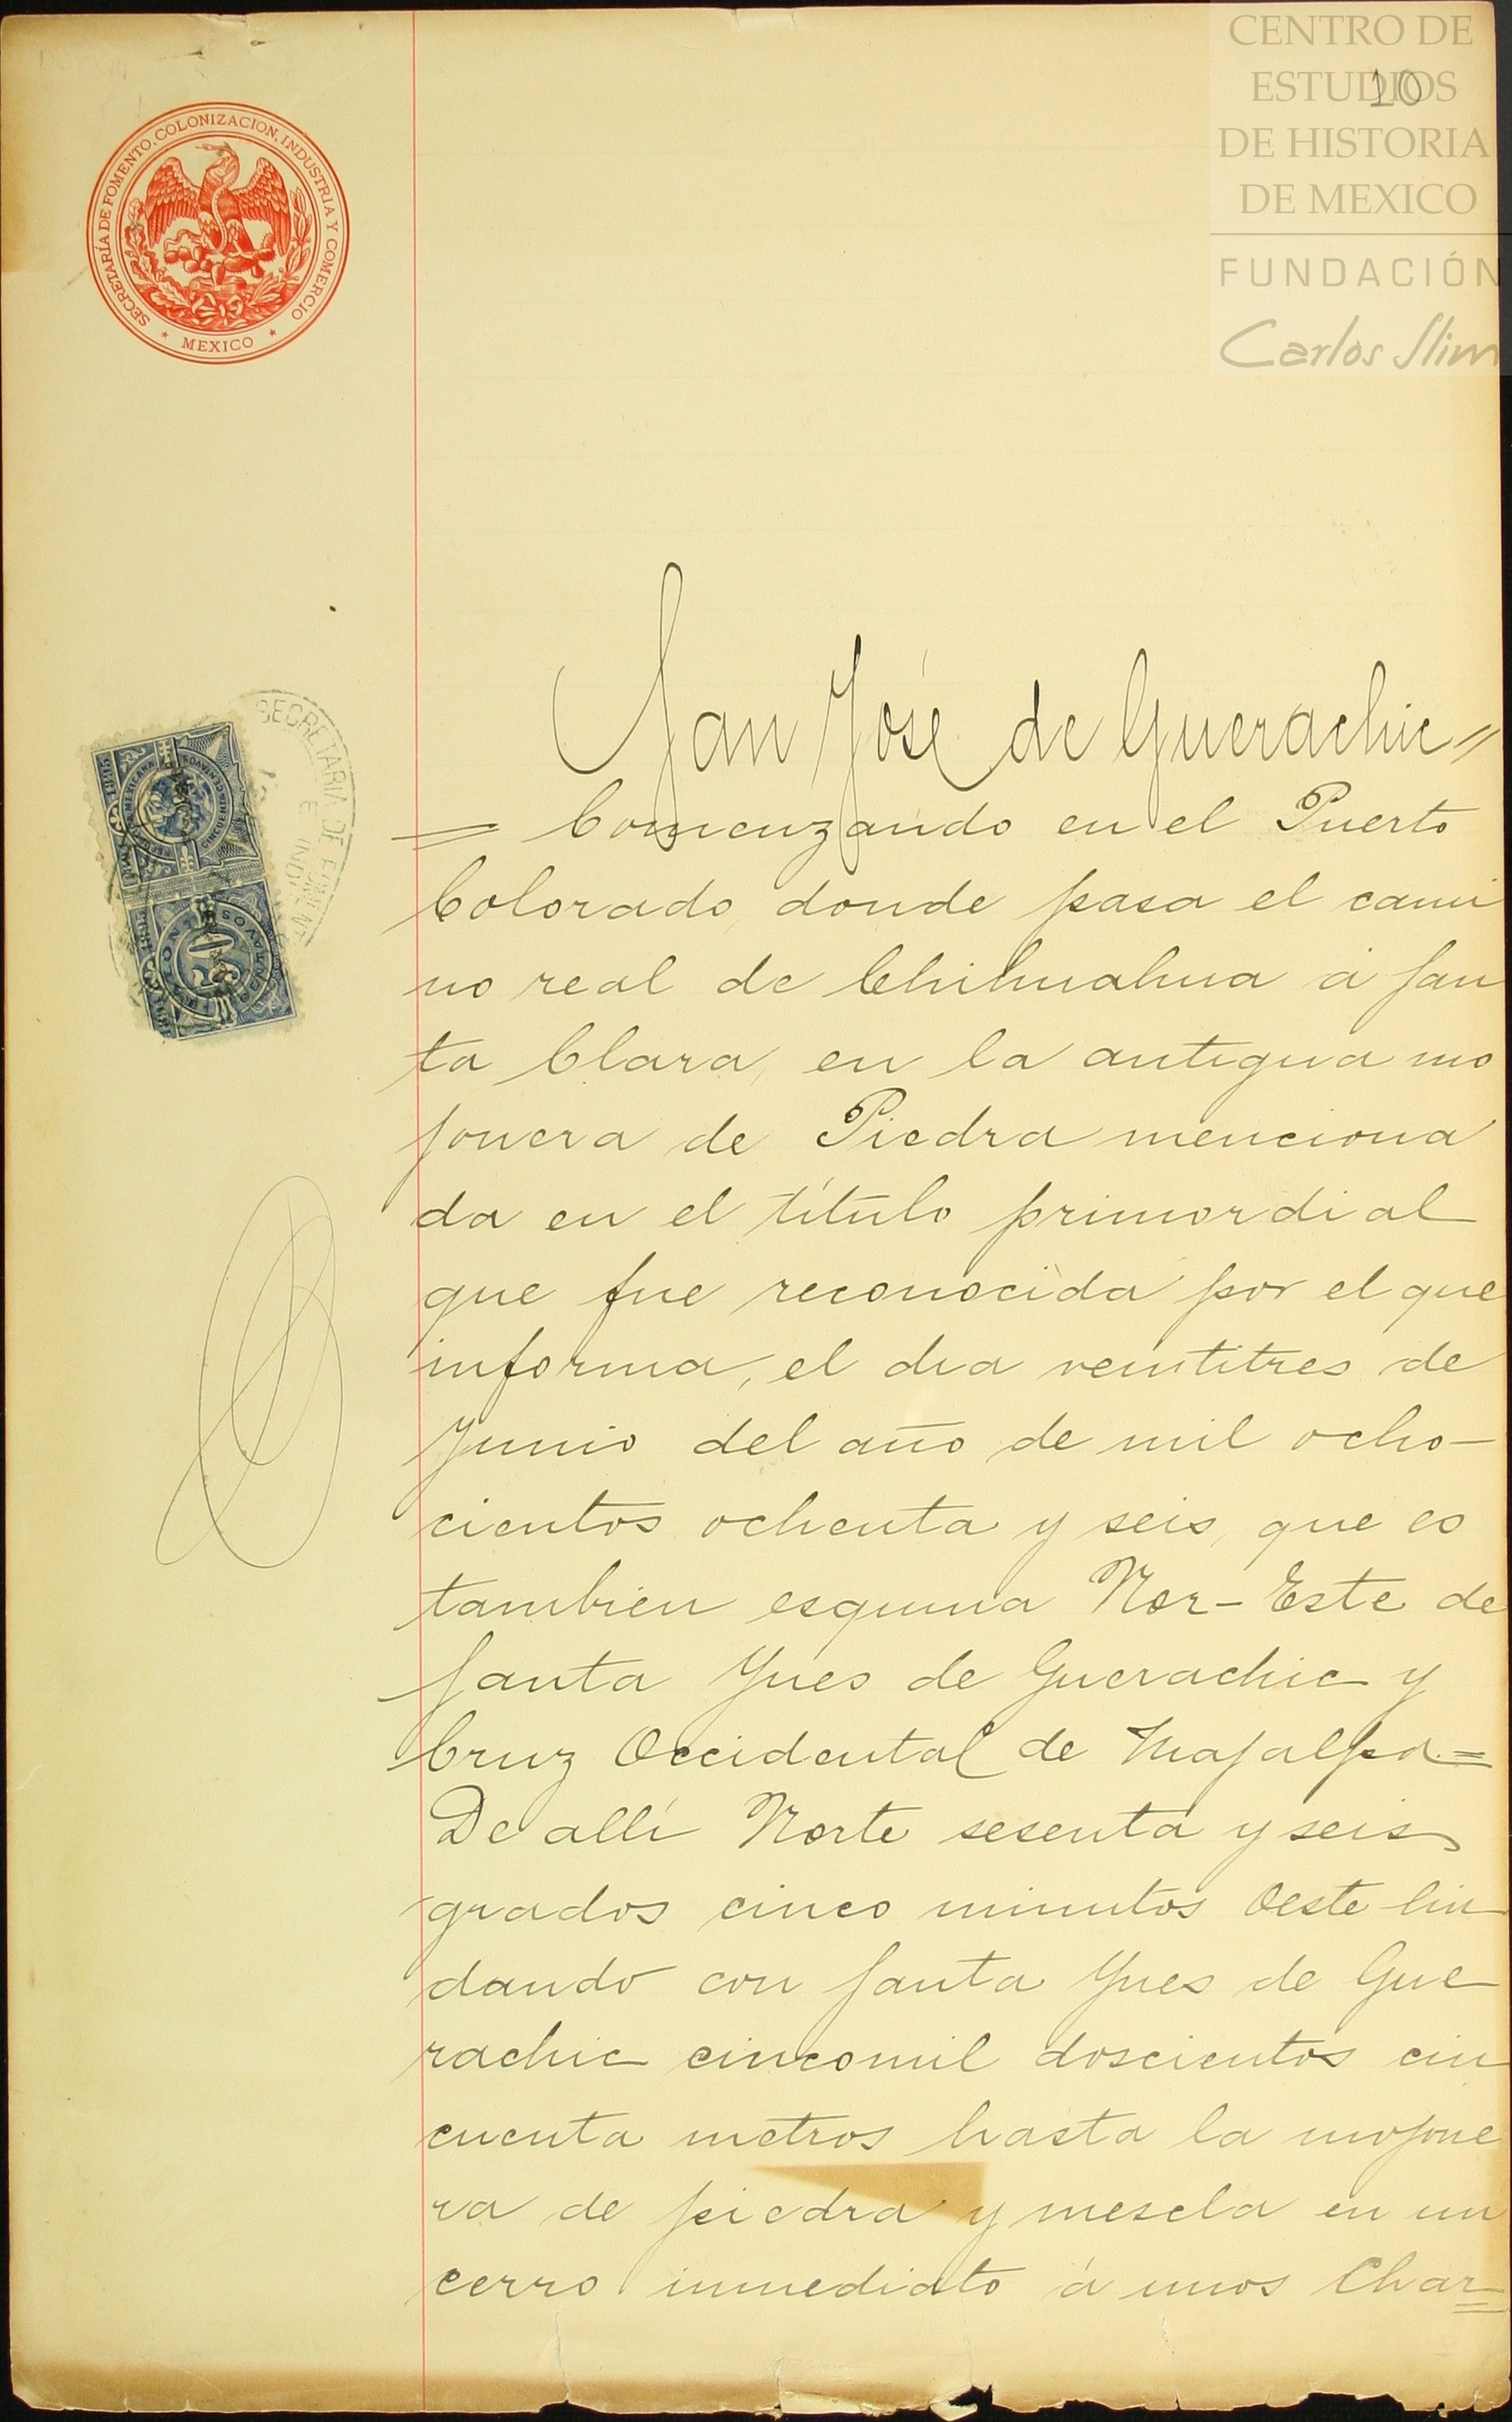 CENTRO DE
ESTUDIOS
DE HISTORIA
DE MEXICO
FUNDACIÓN
Carlos Slim
10
SECRETARÍA DE FOMENTO, COLONIZACION, INDUSTRIA Y COMERCIO
* MEXICO *
SECRETARIA DE FOMENTO
San José de Guerachic
Comenzando en el Puerto
Colorado, donde pasa el cami
no real de Chihuahua á San
ta Clara, en la antigua mo
jonera de Piedra menciona
da en el título primordial
que fue reconocida por el que
informa, el dia veintitres de
Junio del año de mil ocho-
cientos ochenta y seis, que es
tambien esquina Nor-Este de
Santa Ynes de Guerachic y
Cruz Occidental de Majalpa=
De allí Norte sesenta y seis
grados cinco minutos Oeste lin
dando con Santa Ynes de Gue
rachic cincomil doscientos cin
cuenta metros hasta la mojone
ra de piedra y mescla en un
cerro inmediato á unos Char=